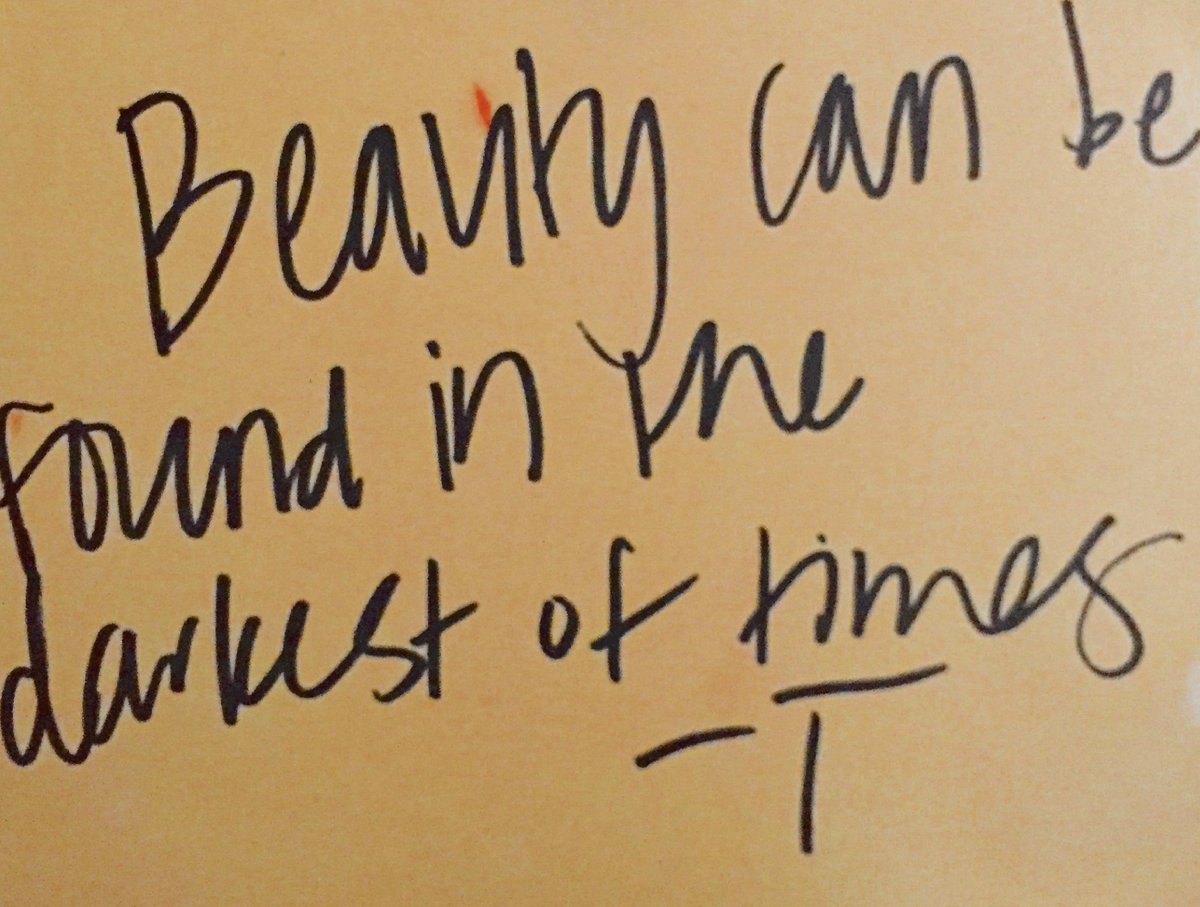 Beauty can be
found in the
darkest of times
- T